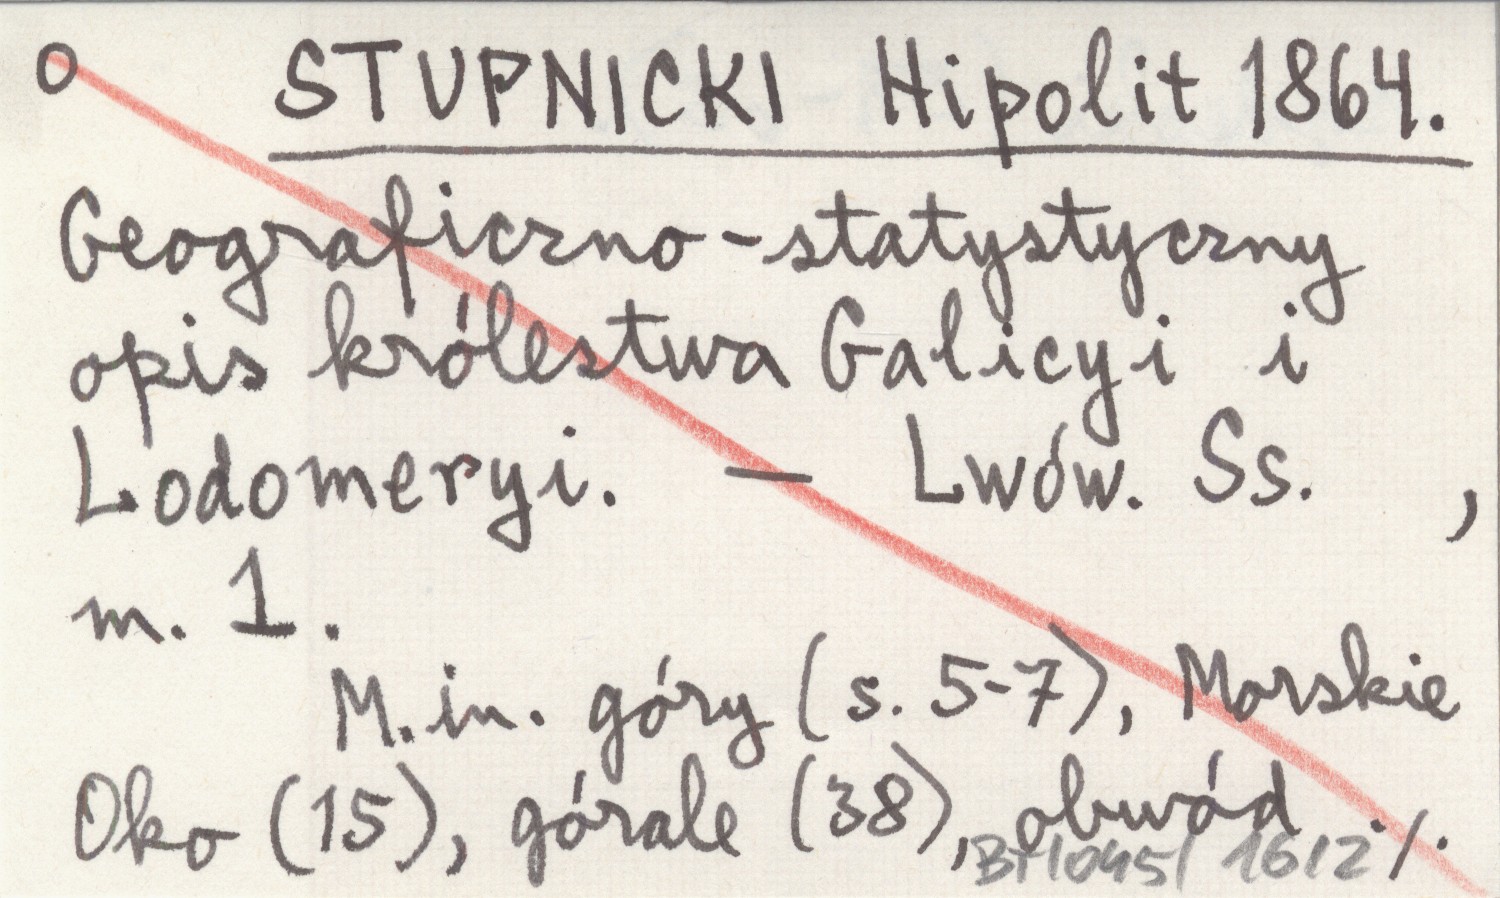 o STUPNICKI Hipolit 1864.
Geograficzno-statystyczny
opis królestwa Galicyi i
Lodomeryi. — Lwów. Ss. ,
m. 1.
M.in. góry (s. 5-7), Morskie
Oko (15), górale (38), obwód ./.
1612